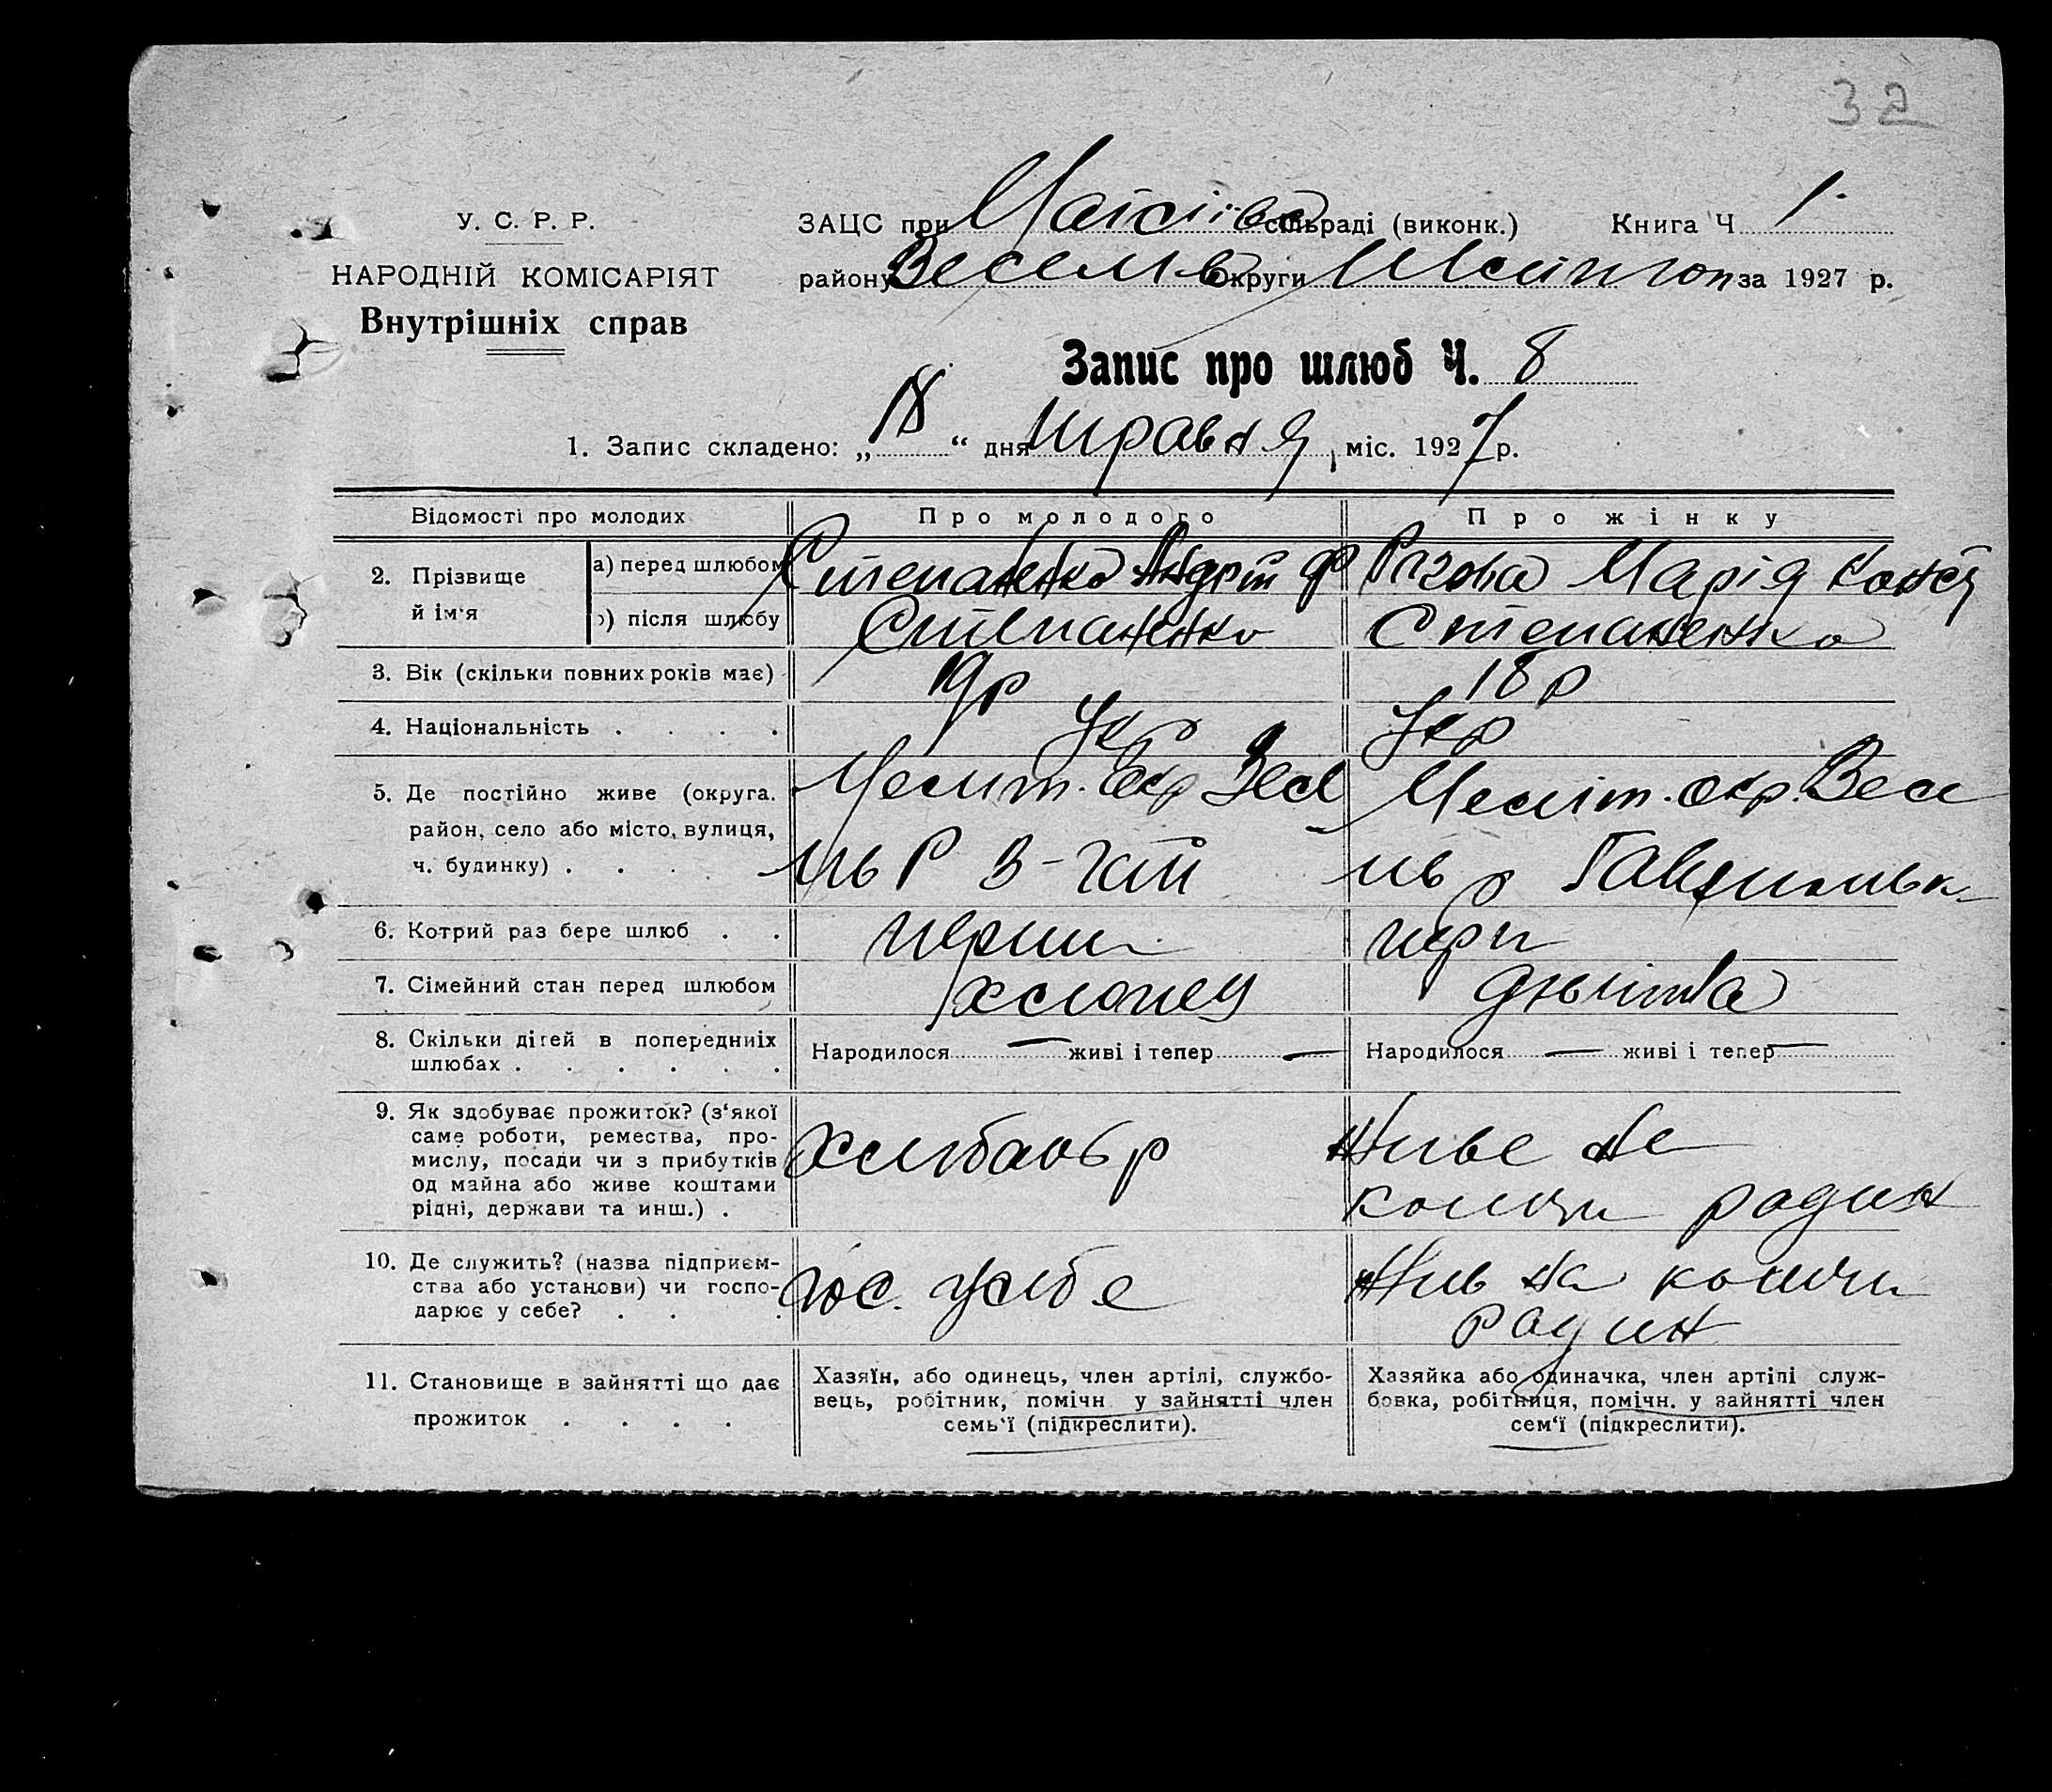 32
У. С. Р. Р.
НАРОДНІЙ КОМІСАРІЯТ
Внутрішніх справ
ЗАЦС при сільраді (виконк.) Книга Ч 1.
району Весель Округи за 1927 р.
Запис про шлюб Ч. 8
1. Запис складено: „18“ дня травня міс. 1927 р.
Відомості про молодих Про молодого Про жінку
2. Прізвище й ім‘я
а) перед шлюбом Степаненко Андрій Ф Марія Конст
б) після шлюбу Степаненко Степаненко
3. Вік (скільки повних років має) 19р 18р
4. Національність . . . . Укр Укр
5. Де постійно живе (округа. Меліт. окр Весе Меліт. окр. Весе
район, село або місто, вулиця,
ч. будинку) . . . . ль Р ль р
6. Котрий раз бере шлюб . . перши перш
7. Сімейний стан перед шлюбом хлопец дівчина
8. Скільки дітей в попередніх
шлюбах . . . . . .
Народилося — живі і тепер — Народилося — живі і тепер —
9. Як здобуває прожиток? (з‘якої
саме роботи, ремества, про-
мислу, посади чи з прибутків
од майна або живе коштами
рідні, держави та инш.) .
хлібаобр
живе на
кошти родин
10. Де служить? (назва підприєм-
ства або установи) чи госпо-
дарює у себе? . . .
гос. у себе
жив на кошти
родин
11. Становище в зайнятті що дає
прожиток . . . .
Хазяїн, або одинець, член артілі, службо-
вець, робітник, помічн у зайнятті член
семь‘ї (підкреслити).
Хазяйка або одиначка, член артілі служ-
бовка, робітниця, помічн. у зайнятті член
сем‘ї (підкреслити).